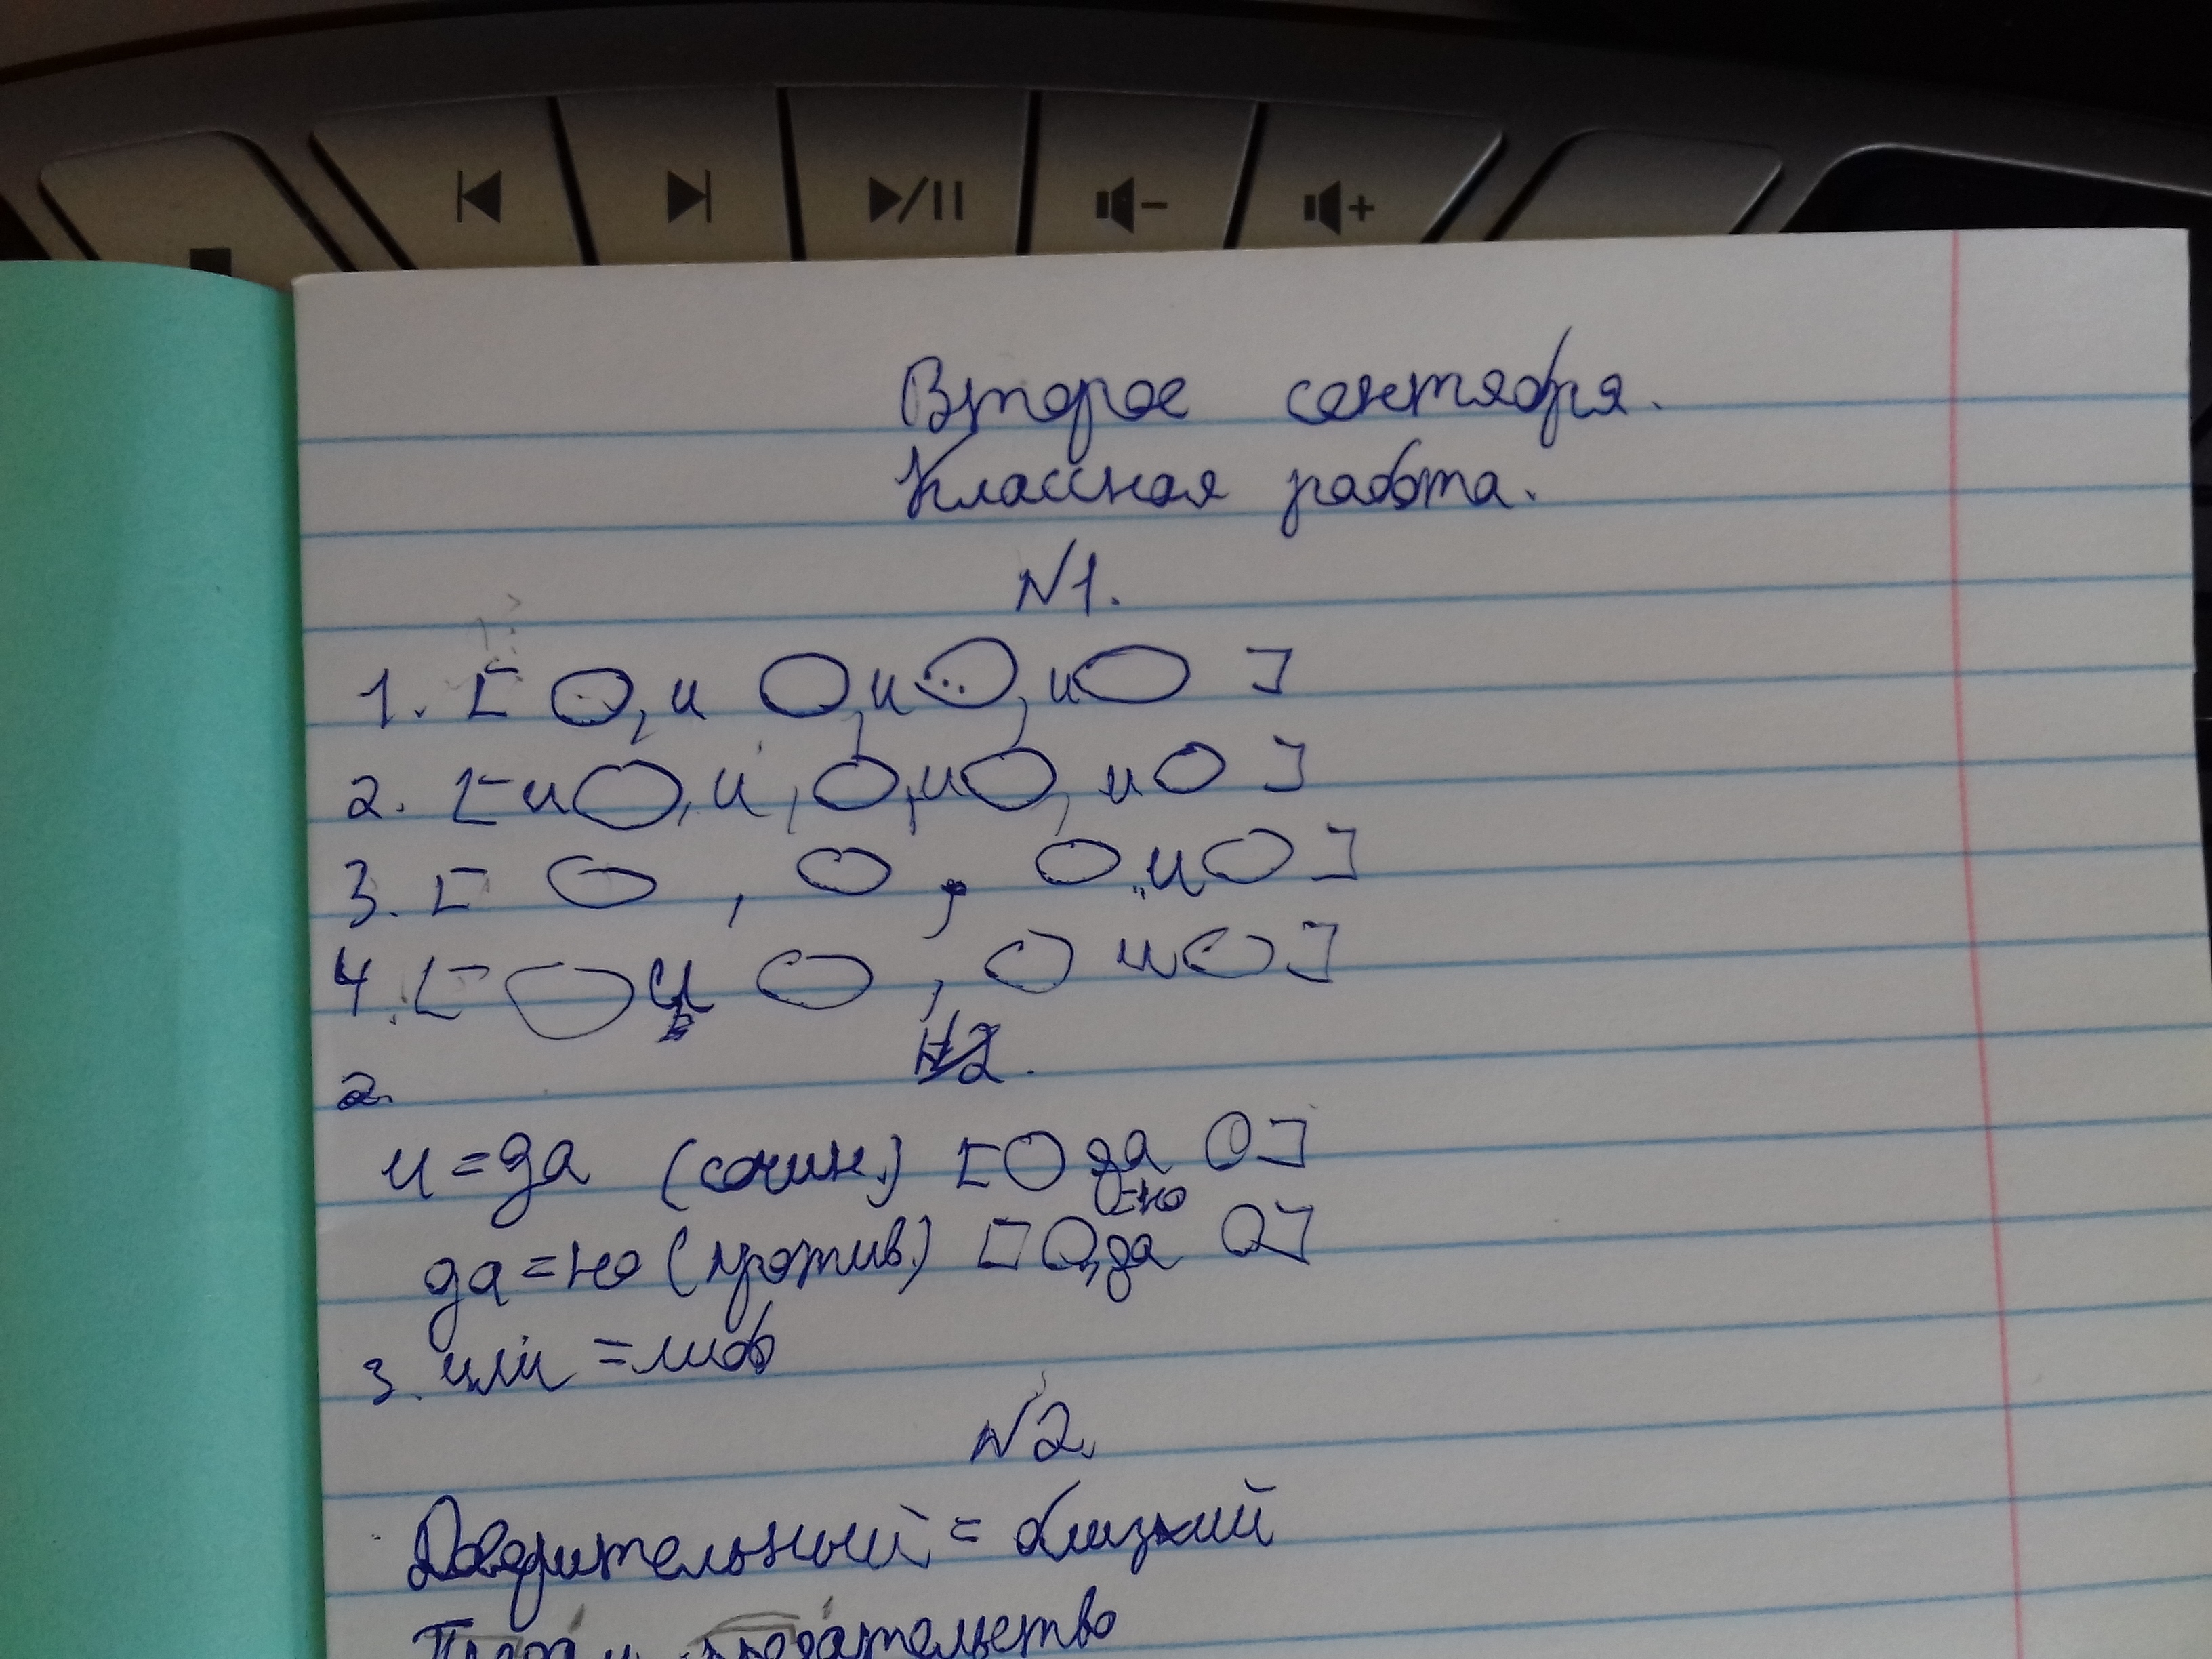 Второе сентября.
Классная работа.
N1.
1. [ О, и О, и О, и О ]
2. [ и О, и, О, и О, и О ]
3. [ О , О , О и О ]
4. [ О и О , О и О ]
2.
и = да (сочин.) [ О да О ]
=но
да = но (против.) [ О, да О ]
3. или = либо
N2.
Доверительный = близкий
предательство